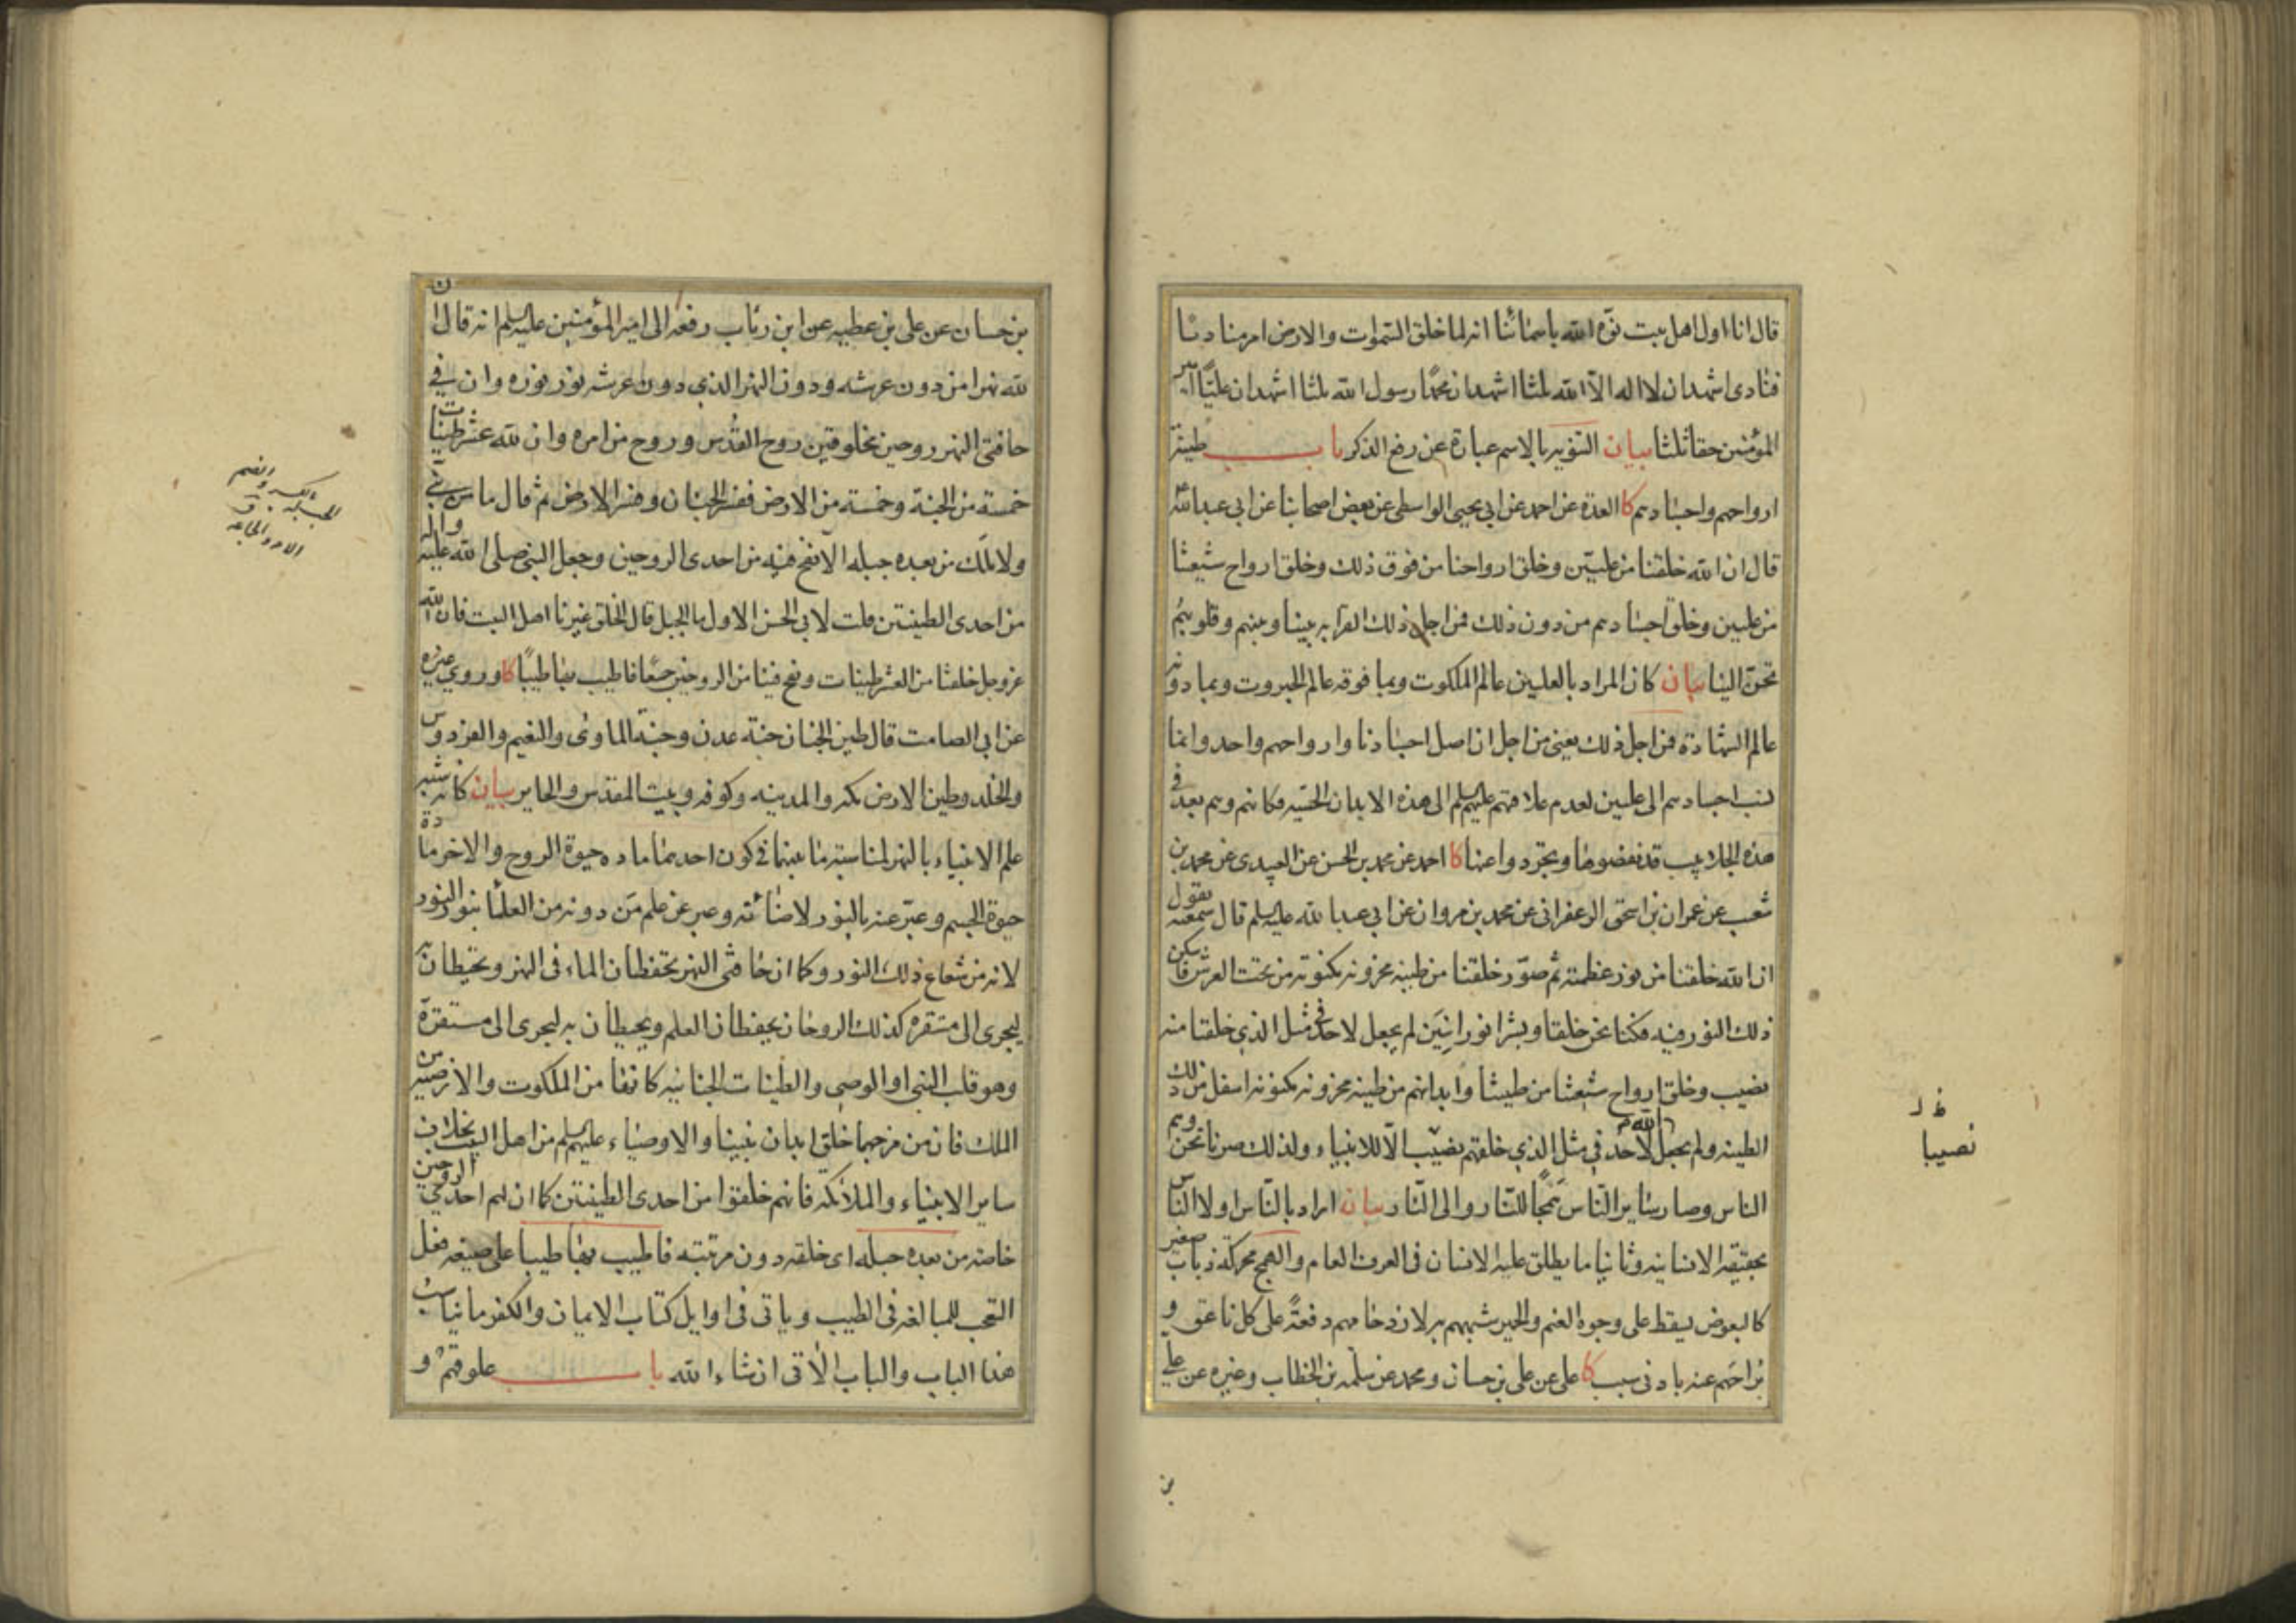 قال انا اول اهل بيت نوّه الله باسمائنا انه لما خلق السموات والارض امر مناديا
فنادى اشهد ان لا اله الا الله ثلثا اشهد ان محمدًا رسول الله ثلثا اشهد ان عليًّا امير
المؤمنين حقا ثلثا بيان التنويه بالاسم عبارة عن رفع الذكر باب طينة
ارواحهم واجسادهم كا العدة عن احمد عن ابي يحيى الواسطى عن بعض اصحابنا عن ابى عبد الله ع
قال ان الله خلقنا من عليّين وخلق ارواحنا من فوق ذلك وخلق ارواح شيعتنا
من عليين وخلق اجسادهم من دون ذلك فمن اجل ذلك القرابه بيننا وبينهم وقلوبهم
تحنّ الينا بيان كان المراد بالعليين عالم الملكوت وبما فوقه عالم الجبروت وبما دونه
عالم الشهادة فمن اجل ذلك يعنى من اجل ان اصل اجسادنا وارواحهم واحد وانما
نسب اجسادهم الى عليين لعدم علاقتهم عليهم السلم الى هذه الابدان الحسّيه فكانهم وهم بعد فى
هذه الجلابيب قد نفضوها وتجردوا عنها كا احمد عن محمد بن الحسن عن العبيدى عن محمد بن
شعيب عن عمران بن اسحق الزعفرانى عن محمد بن مروان عن ابي عبد الله عليه السلم قال سمعته يقول
ان الله خلقنا من نور عظمته ثم صوّر خلقنا من طينه مخزونه مكنونه من تحت العرش فاسكن
ذلك النور فيه فكنا نحن خلقا وبشرا نورانيّين لم يجعل لاحد فى مثل الذي خلقنا منه
نصيب وخلق ارواح شيعتنا من طينتنا وابدانهم من طينه مخزونه مكنونه اسفل من ذلك
الطينه ولم يجعل الله لاحد في مثل الذي خلقهم نصيب الّا للانبياء ولذلك صرنا نحن وهم
الناس وصار ساير النّاس همجًا للنّار والى النّار بيان اراد بالنّاس اولا الناس
بحقيقة الانسانيه وثانيا ما يطلق عليه الانسان فى العرف العام والهمج محركة ذباب صغير
كالبعوض يسقط على وجوه الغنم والحمير شبههم به لازدحامهم دفعةً على كل ناعق و
براحهم عنه بادنى سبب كا على عن على بن حسان ومحمد عن سلمه بن الخطاب وغيره عن على
بن
خ ل
نصيبا
بن حسان عن على بن عطيه عن ابن رئاب رفعه الى امير المؤمنين عليه السلم انه قال ان
لله نهرا من دون عرشه ودون النهر الذي دون عرشه نور نوره وان في
حافتى النهر روحين مخلوقين روح القدس وروح من امره وان لله عشر طينات
خمسة من الجنة وخمسة من الارض ففسر الجنان وفسر الارض ثم قال ما من نبي
ولا ملك من بعده جبله الا نفخ فيه من احدى الروحين وجعل النبي صلى الله عليه واله
من احدى الطينتين قلت لابي الحسن الاول ما الجبل قال الخلق غيرنا اهل البيت فان الله
عز وجل خلقنا من العشر طينات ونفخ فينا من الروحين جميعًا فاطيب بها طيبًا كا وروي غيره
عن ابي الصامت قال طين الجنان جنة عدن وجنّة الماوى والنعيم والفردوس
والخلد وطين الارض مكه والمدينه وكوفه وبيت المقدس والحاير بيان كانه شبه
علم الانبياء بالنهر لمناسبة ما بينهما فى كون احدهما ماده حيوة الروح والاخر مادة
حيوة الجسم وعبّر عنه بالنور لاضائته وعبر عن علم من دونه من العلما بنور النور
لانه من شعاع ذلك النور وكما ان حافتى النهر يحفظان الماء فى النهر ويحيطان به
ليجرى الى مستقره كذلك الروحان يحفظان العلم ويحيطان به ليجرى الى مستقره
وهو قلب النبى او الوصى والطينات الجنانيه كانها من الملكوت والارضيه من
الملك فان من مزجهما خلق ابدان نبينا والاوصياء عليهم السلم من اهل البيت بخلاف
ساير الانبياء والملائكه فانهم خلقوا من احدى الطينتين كما ان لهم احدى الروحين
خاصه من بعده جبله اى خلقه دون مرتبته فاطيب بها طيبا على صيغه فعل
التعجب للمبالغه فى الطيب وياتى فى اوايل كتاب الايمان والكفر ما يناسب
هذا الباب والباب الآتى ان شاء الله باب علوقهم و